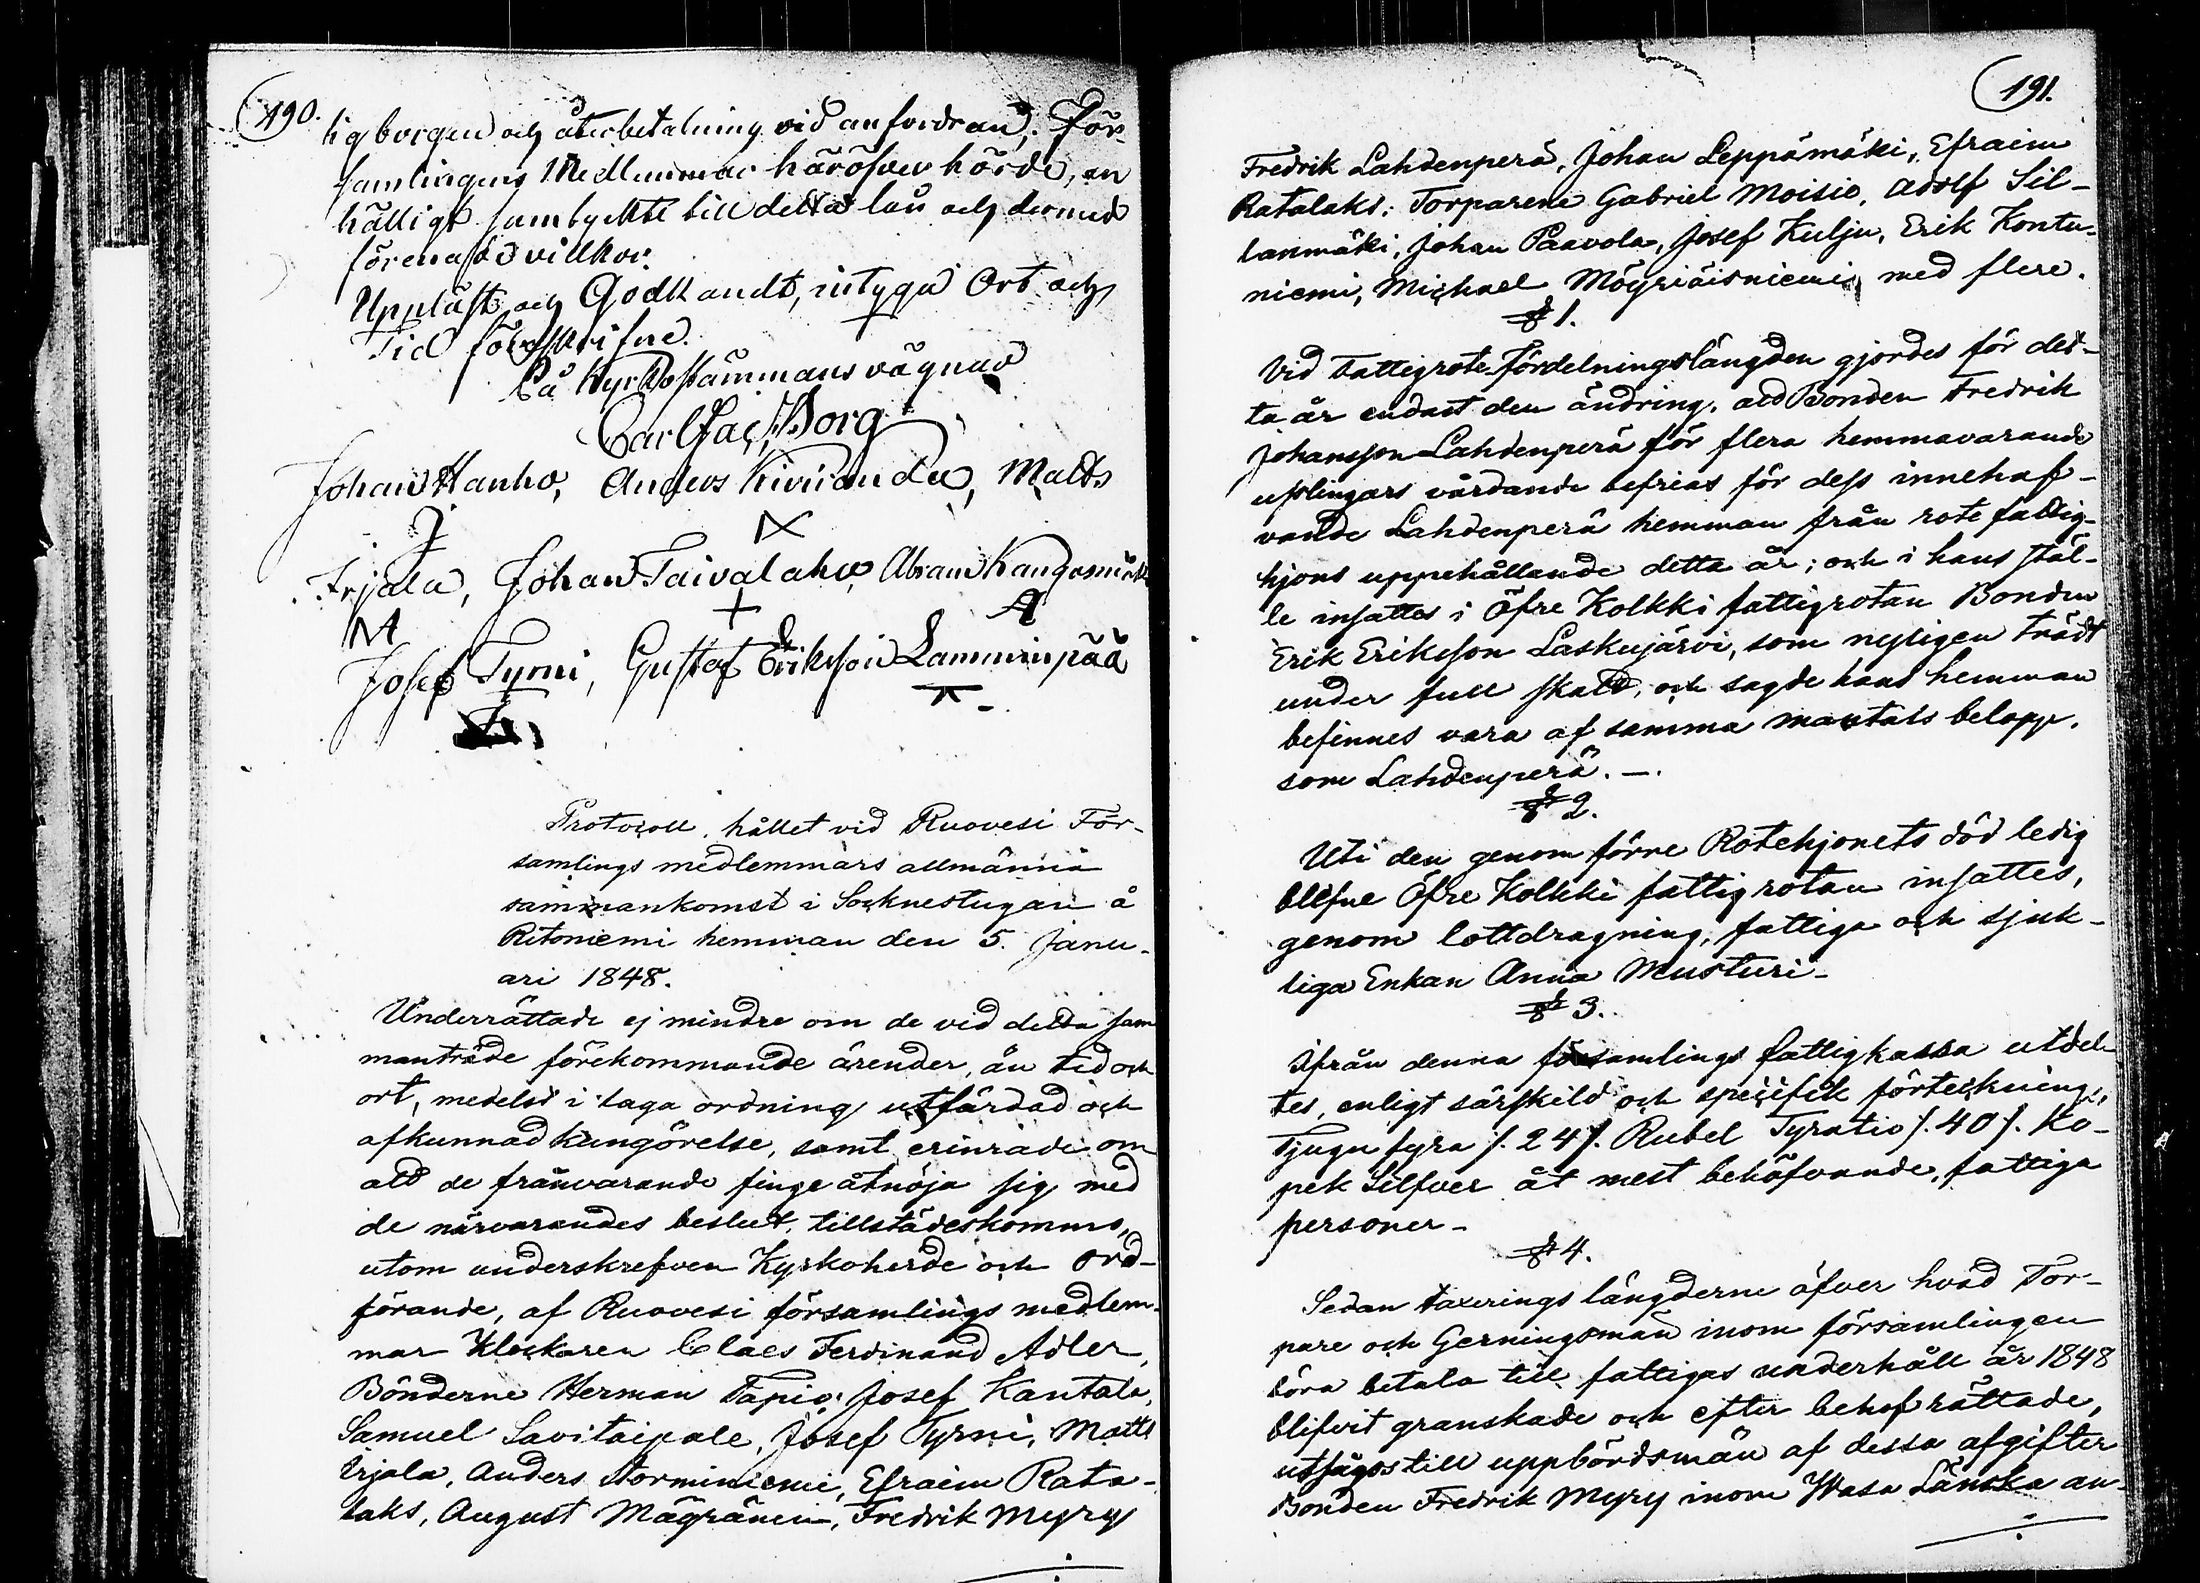 190.
lig borgen och återbetalning vid anfordran; För-
samlingens Medlemmar häröfver hörde, en
hälligt samtyckte till detta lån och dermed
förenade villkor.
Uppläst och Godkändt, intyga Ort och
Tid förrskrifne.
På Kyrkostämmans vägnar
Carl Jac. Borg
Johan Hanho, Anders Kiviranda, Matts
Irjala, Johan Taivalaho, Abram Kangasmäki
Josef Tyrni, Gustaf Eriksson Lamminpää
Protocoll, hållet vid Ruovesi För-
samlings medlemmars allmänna
sammankomst i Socknestugan å
Ritoniemi hemman den 5. Janu-
ari 1848.
Underrättade ej mindre om de vid detta sam
manträde förekommande ärender, än tid och
ort, medelst i laga ordning utfärdad och
afkunnad kungörelse, samt erinrade om
att de frånvarande finge åtnöja sig med
de närvarandes beslut, tillstädeskommo,
utom underskrefven Kyrkoherde och Ord-
förande, af Ruovesi församlings medlem-
mar Klockaren Claes Ferdinand Adler,
Bönderne Herman Tapio, Josef Kantala,
Samuel Savitaipale, Josef Tyrni, Matts
Irjala, Anders Storminiemi, Efraim Rata-
laks, August Mägränen, Fredrik Myry
191.
Fredrik Lahdenperä, Johan Leppämäki, Efraim
Ratalaks; Torparene Gabriel Moisio, Adolf Sil-
lanmäki, Johan Paavola, Josef Kulju, Erik Kontu-
niemi, Michael Möyriäisniemi, med flere.
§ 1.
Vid Fattigrote-fördelningslängden gjordes för det-
ta år endast den ändring, att Bonden Fredrik
Johansson Lahdenperä för flera hemmavarande
uslingars vårdande befrias för dess innehaf-
vande Lahdenperä hemman från rote fattig-
hjons uppehållande detta år; och i hans stäl-
le insattes i Öfre Kolkki fattigrotan Bonden
Erik Eriksson Laskujärvi, som nyligen trädt
under full skatt, och sagde hans hemman
befinnes vara af samma mantals belopp,
som Lahdenperä. —.
§ 2.
Uti den genom förre Rotehjonets död ledig
blefne Öfre Kolkki fattig rotan insattes,
genom lottdragning, fattiga och sjuk-
liga Enkan Anna Musturi-
§ 3.
Ifrån denna församlings fattigkassa utdel-
tes, enligt särskild och specifik förteckning,
Tjugu fyra /. 24 /. Rubel Fyratio /. 40 /. Ko-
pek Silfver åt mest behöfvande, fattiga
personer-
§ 4.
Sedan taxerings längderne öfver hvad Tor-
pare och Gerningsmän inom församlingen
böra betala till fattigas underhåll år 1848
blifvit granskade och efter behof rättade,
utsågos till uppbördsmän af dessa afgifter
Bonden Fredrik Myry inom Wasa Länska an-